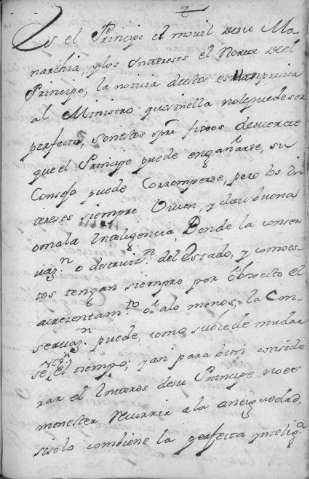 Es el Principe el movil de su Mo-
narchia, y los Intereses el Norte del
Principe, la noticia de estos es tan precisa
al Ministro que sin ella no le puede ser
perfecto, son estos siempre fixos de suerte
que el Principe puede engañarse, su
Consejo puede Corromperse, pero los in-
tereses siempre Viven, y dan buena
o mala Inteligencia, Donde la conser-
vaz.n o destruiz.n del Estado, y como es-
tos tengan siempre por obxecto el
acrecentam.to o a lo menos, la Con-
servaz.n puede, como subcede mudar
se el tiempo, y asi para bien conside
rar el Interes de su Principe no es
menester recurrir a la antiguedad,
si solo combiene la perfecta intelig.a